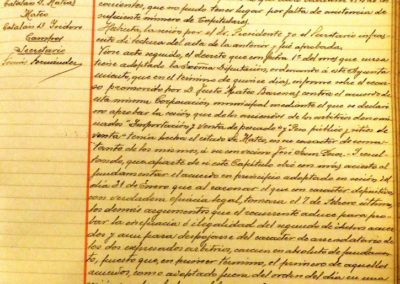 Catalán D. Matías
Mateo
Catalán D. Isidoro
Secretario
corrientes, que no pudo tener lugar por falta de asistencia de
suficiente número de Capitulares.
Abierta la sesión por el Sr. Presidente yo el Secretario infras-
di lectura del acta de la anterior y fué aprobada.
Visto acto seguido, el decreto que con fecha 1º del mes que
tiene adoptado la Excma. Diputación, ordenando á este Ayunta-
miento, que en el término de quince días, informe sobre el recur-
so promovido por D. Justo Mateo contra el acuerdo de
esta misma Corporación municipal mediante el que se declaró
no aprobar la cesión que de los servicios de los arbitrios denomi-
nados "Importación y Venta de pescado" y "Peso público y sitios de
venta" tenía hecha el citado Sr. Mateo, en su carácter de arrenda-
tario de los mismos, á su convecino José
tando, que aparte de si este Capítulo dió con mas acierto al
fundamentar el acuerdo en principio adoptado en sesión del
día 31 de Enero que al razonar el que con carácter definitivo
con verdadera eficacia legal, tomara el 7 de Febrero último,
los demás argumentos que el recurrente aduce para pro-
bar la ineficacia é ilegalidad del segundo de dichos acuer-
dos y aun para despojarse del carácter de arrendatario de
los dos expresados arbitrios, carecen en absoluto de fundamen-
to, puesto que, en primer término, el primero de aquellos
acuerdos, como adoptado fuera del orden del día en una